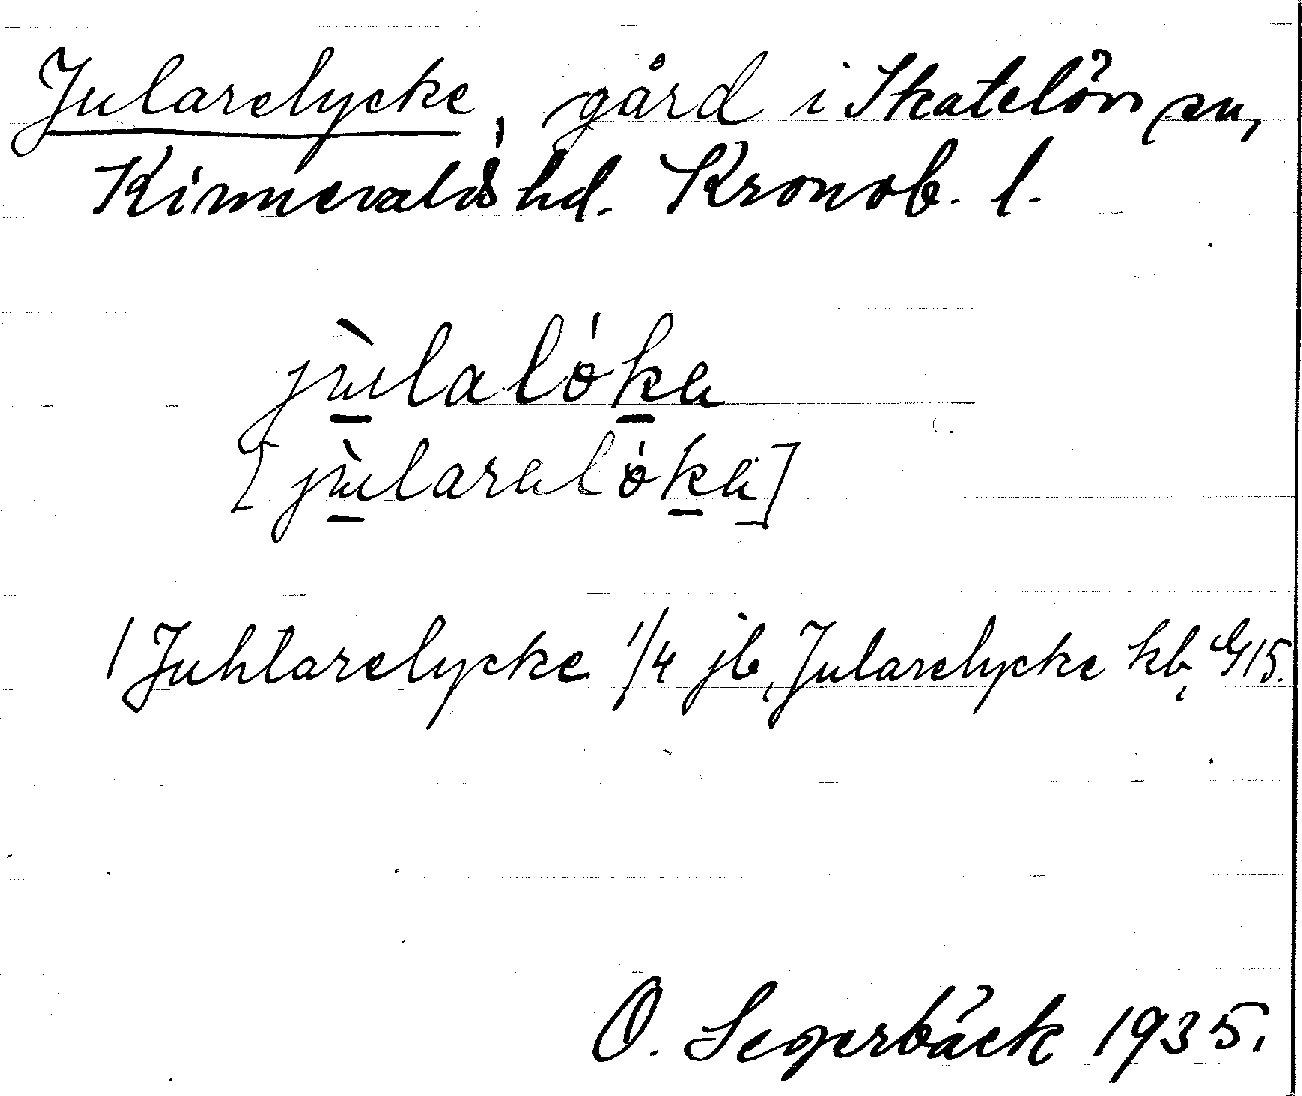 Jularelycke, gård i Skatelöv sn,
Kinnevalds hd. Kronob. l.
jùlalóka
[jùlaralóka]
1 Juhlarelycke 1/4 jb, Jularelycke kb, G15.
O. Segerbäck 1935.